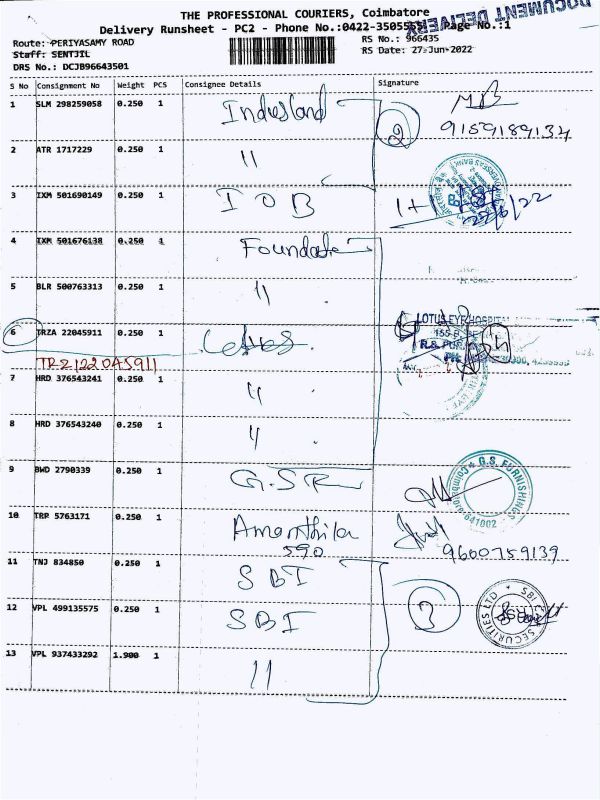 THE PROFESSIONAL COURIERS, Coimbatore
DOCUMENT DELIVERY
Delivery Runsheet - PC2 - Phone No.:0422-3505565 Page No.:1
Route: PERIYASAMY ROAD
RS No.: 966435
Staff: SENTJIL
RS Date: 27-Jun-2022
DRS No.: DCJB96643501
S No Consignment No Weight PCS Consignee Details Signature
1 SLM 298259058 0.250 1 Indusland
2
9159189134
2 ATR 1717229 0.250 1 11
3 IXM 501690149 0.250 1 I O B 1+1
4 IXM 501676138 0.250 1
5 BLR 500763313 0.250 1 11
6 TRZA 22045911 0.250 1 Lotus
LOTUS EYE HOSPITAL
TRZ122045911
7 HRD 376543241 0.250 1 11
8 HRD 376543240 0.250 1 11
9 BWD 2790339 0.250 1 G.S R
G.S. FURNISHINGS
641002
10 TRP 5763171 0.250 1
590
9600759139
11 TNJ 834850 0.250 1 SBI
12 VPL 499135575 0.250 1 SBI 3
SECURITIES LTD
13 VPL 937433292 1.900 1 11